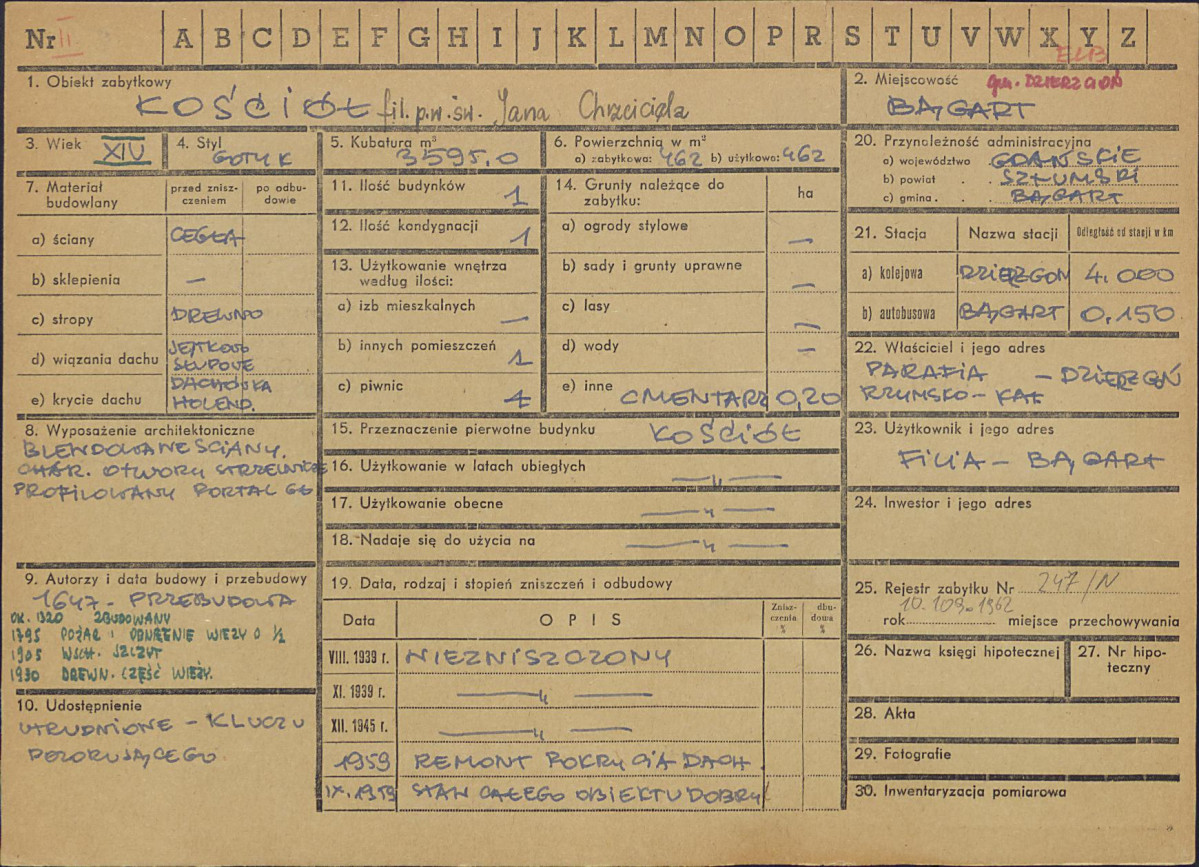 Nr II A B C D E F G H I J K L M N O P R S T U V W X Y Z
ELB
1. Obiekt zabytkowy
KOŚCIÓŁ fil. p.w. św. Jana Chrzciciela
2. Miejscowość gm. DZIERZGOŃ
BĄGART
3. Wiek XIV
4. Styl
GOTYK
5. Kubatura m³
3595,0
6. Powierzchnia w m²
a) zabytkowa: 462 b) użytkowa: 462
20. Przynależność administracyjna
a) województwo GDAŃSKIE
b) powiat . . SZTUMSKI
c) gmina . . BĄGART
7. Materiał budowlany
przed znisz-
czeniem
po odbu-
dowie
a) ściany CEGŁA
b) sklepienia —
c) stropy DREWNO
d) wiązania dachu JĘTKOWO
SŁUPOWE
e) krycie dachu DACHÓWKA
HOLEND.
11. Ilość budynków 1
12. Ilość kondygnacji 1
13. Użytkowanie wnętrza
według ilości:
a) izb mieszkalnych —
b) innych pomieszczeń 1
c) piwnic
14. Grunty należące do
zabytku:
ha
a) ogrody stylowe —
b) sady i grunty uprawne —
c) lasy —
d) wody —
e) inne CMENTARZ 0,20
21. Stacja Nazwa stacji Odległość od stacji w km
a) kolejowa DZIERZGOŃ 4.000
b) autobusowa BĄGART 0.150
22. Właściciel i jego adres
PARAFIA — DZIERZGOŃ
RZYMSKO - KAT
8. Wyposażenie architektoniczne
BLENDOWANE ŚCIANY.
CHAR. OTWORY STRZELNICZE
PROFILOWANY PORTAL
15. Przeznaczenie pierwotne budynku KOŚCIÓŁ
16. Użytkowanie w latach ubiegłych
— „ —
17. Użytkowanie obecne — „ —
18. Nadaje się do użycia na — „ —
23. Użytkownik i jego adres
FILIA - BĄGART
24. Inwestor i jego adres
9. Autorzy i data budowy i przebudowy
1647 - PRZEBUDOWA
OK. 1320 ZBUDOWANY
1795 POŻAR I OBNIŻENIE WIEŻY O ½
1905 WSCH. SZCZYT
1930 DREWN. CZĘŚĆ WIEŻY.
10. Udostępnienie
UTRUDNIONE - KLUCZ U
DOZORUJĄCEGO
19. Data, rodzaj i stopień zniszczeń i odbudowy
Data OPIS Znisz-
czenia
%
dbu-
dowa
%
VIII. 1939 r. NIEZNISZCZONY
XI. 1939 r. — „ —
XII. 1945 r. — „ —
1959 REMONT POKRYCIA DACH.
IX. 1959 STAN CAŁEGO OBIEKTU DOBRY
25. Rejestr zabytku Nr 247/N
rok miejsce przechowywania
26. Nazwa księgi hipotecznej
27. Nr hipo-
teczny
28. Akta
29. Fotografie
30. Inwentaryzacja pomiarowa